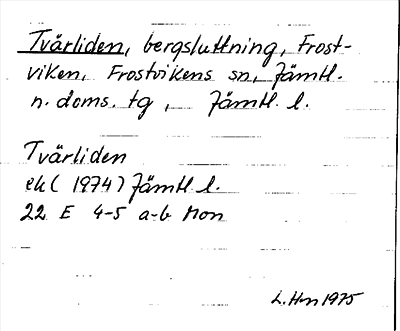 Tvärliden, bergsluttning, Frost-
viken, Frostvikens sn, Jämtl.
n. doms. tg, Jämtl. l.
Tvärliden
ek (1974) Jämtl l.
22 E 4-5 a-b Mon
L. Hm 1975